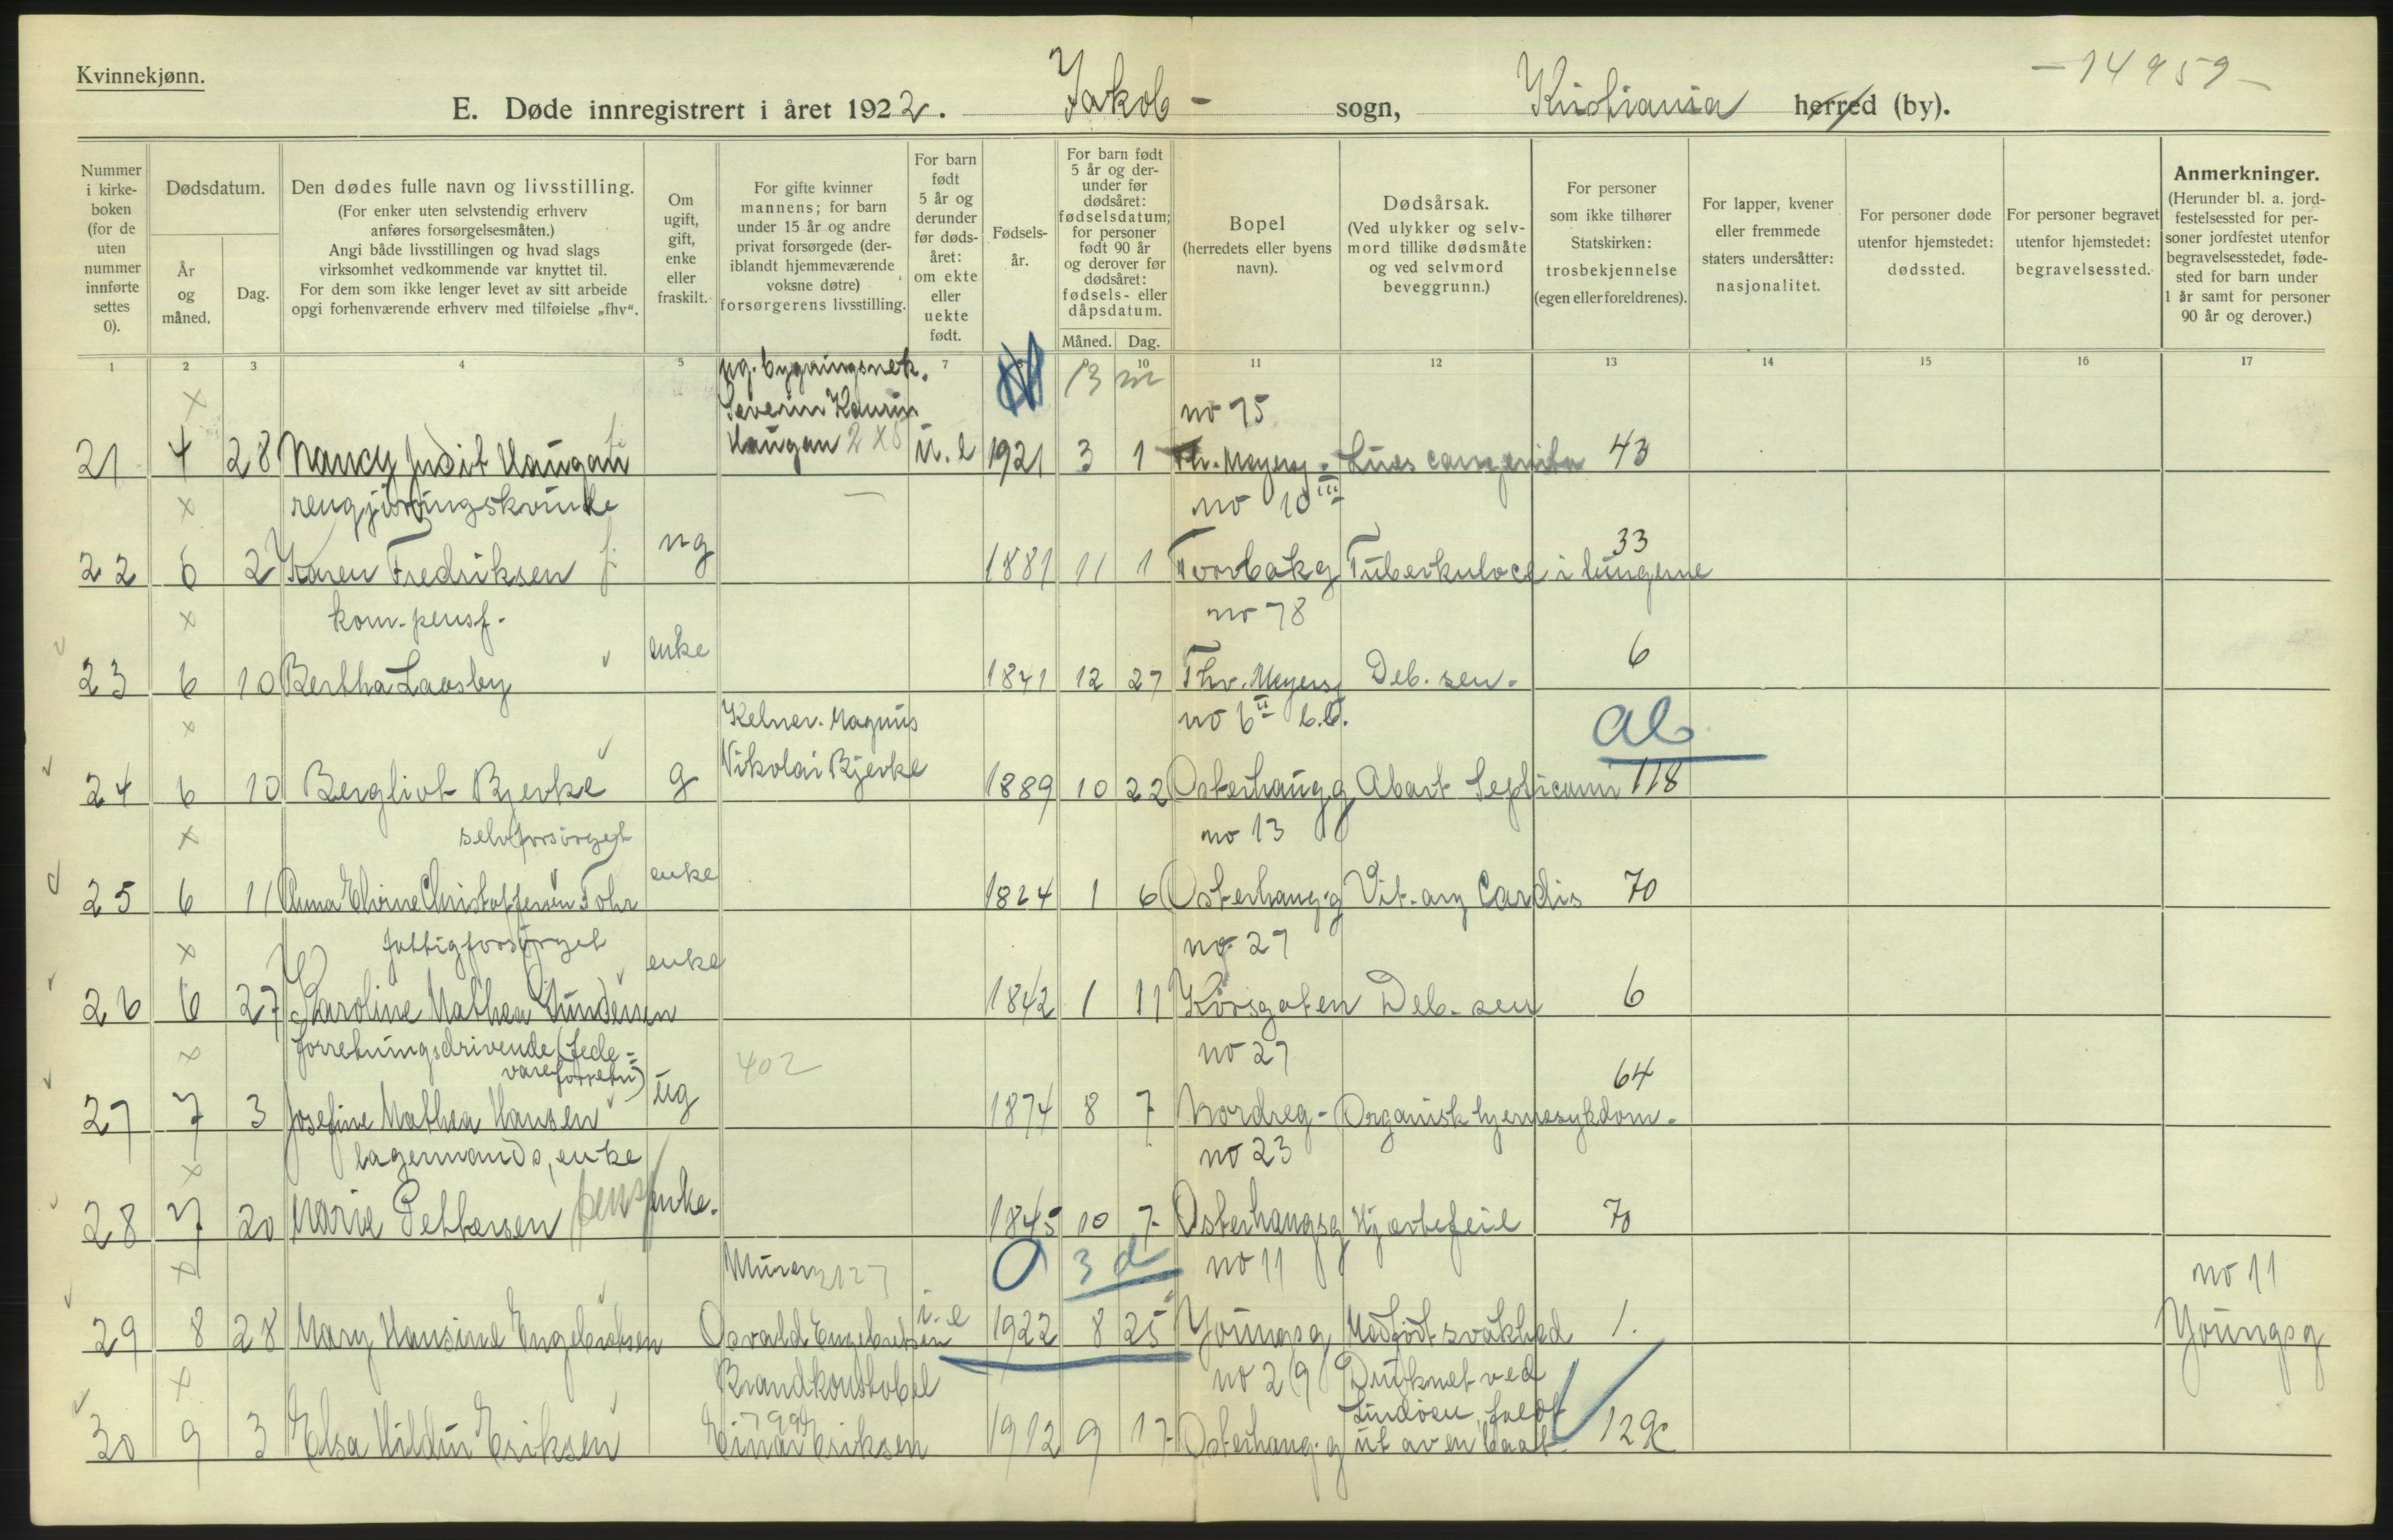 Kvinnekjønn.
- 14959 -
E. Døde innregistrert i året 1922. Jakob - sogn, Kristiania herred (by).
Nummer i kirkeboken (for de uten nummer innførte settes 0).
Dødsdatum.
År og måned.
Dag.
Den dødes fulle navn og livsstilling.
(For enker uten selvstendig erhverv anføres forsørgelsesmåten.)
Angi både livsstillingen og hvad slags virksomhet vedkommende var knyttet til.
For dem som ikke lenger levet av sitt arbeide opgi forhenværende erhverv med tilføielse „fhv“.
Om ugift, gift, enke eller fraskilt.
For gifte kvinner mannens; for barn under 15 år og andre privat forsørgede (deriblandt hjemmeværende voksne døtre) forsørgerens livsstilling.
For barn født 5 år og derunder før dødsåret: om ekte eller uekte født.
Fødselsår.
For barn født 5 år og derunder før dødsåret: fødselsdatum; for personer født 90 år og derover før dødsåret: fødsels- eller dåpsdatum.
Måned. Dag.
Bopel
(herredets eller byens navn).
Dødsårsak.
(Ved ulykker og selvmord tillike dødsmåte og ved selvmord beveggrunn.)
For personer som ikke tilhører Statskirken: trosbekjennelse (egen eller foreldrenes).
For lapper, kvener eller fremmede staters undersåtter: nasjonalitet.
For personer døde utenfor hjemstedet: dødssted.
For personer begravet utenfor hjemstedet: begravelsessted.
Anmerkninger.
(Herunder bl. a. jordfestelsessted for personer jordfestet utenfor begravelsesstedet, fødested for barn under 1 år samt for personer 90 år og derover.)
1 2 3 4 5 7 10 11 12 13 14 15 16 17
13 m
Severin Kaurin
no 75
21 4 28 Nancy Judit Haugan Haugan u.e 1921 3 1 Th. Meyersg. Lues congenita 43
rengjøringskvinde no 10 III
22 6 2 Karen Fredriksen ug 1881 11 1 Torvbakg Tuberkulose i lungerne 33
kom. pensj. no 78
23 6 10 Bertha Laasby enke 1841 12 27 Thv. Meyersg Deb. sen. 6
Kelner. Magnus no 6 II ab
24 6 10 Bergliot Bjerke g Nikolai Bjerke 1889 10 22 Osterhaugg Abort Septicæmi 118
selvforsørget no 13
25 6 11 Anna Christoffersen Fohr enke 1824 1 6 Osterhaug.g Vit. org Cardis 70
fattigforsørget no 27
26 6 27 Karoline Mathea Gundersen enke 1842 1 11 Korsgaten Deb. sen 6
forretningsdrivende (fedevareforretn) 402 no 27
27 7 3 Josefine Mathea Hansen ug 1874 8 7 Nordreg - Organisk hjernesykdom. 64
lagermands, enke no 23
28 7 20 Marie Pettersen pens enke. 1845 10 7 Osterhaugsg Hjertefeil 70
Murer 2127 0 3 d no 11 no 11
29 8 28 Mary Hansine Engebretsen Osvald Engebretsen e 1922 8 25 Youngsg Medfødt svakhed 1. Youngsg
Brandkonstabel no 29 Druknet ved
Lindøen, faldt
30 9 3 Elsa Hildur Eriksen Einar Eriksen 1912 9 17 Osterhaug.g ut av en baat. 129c